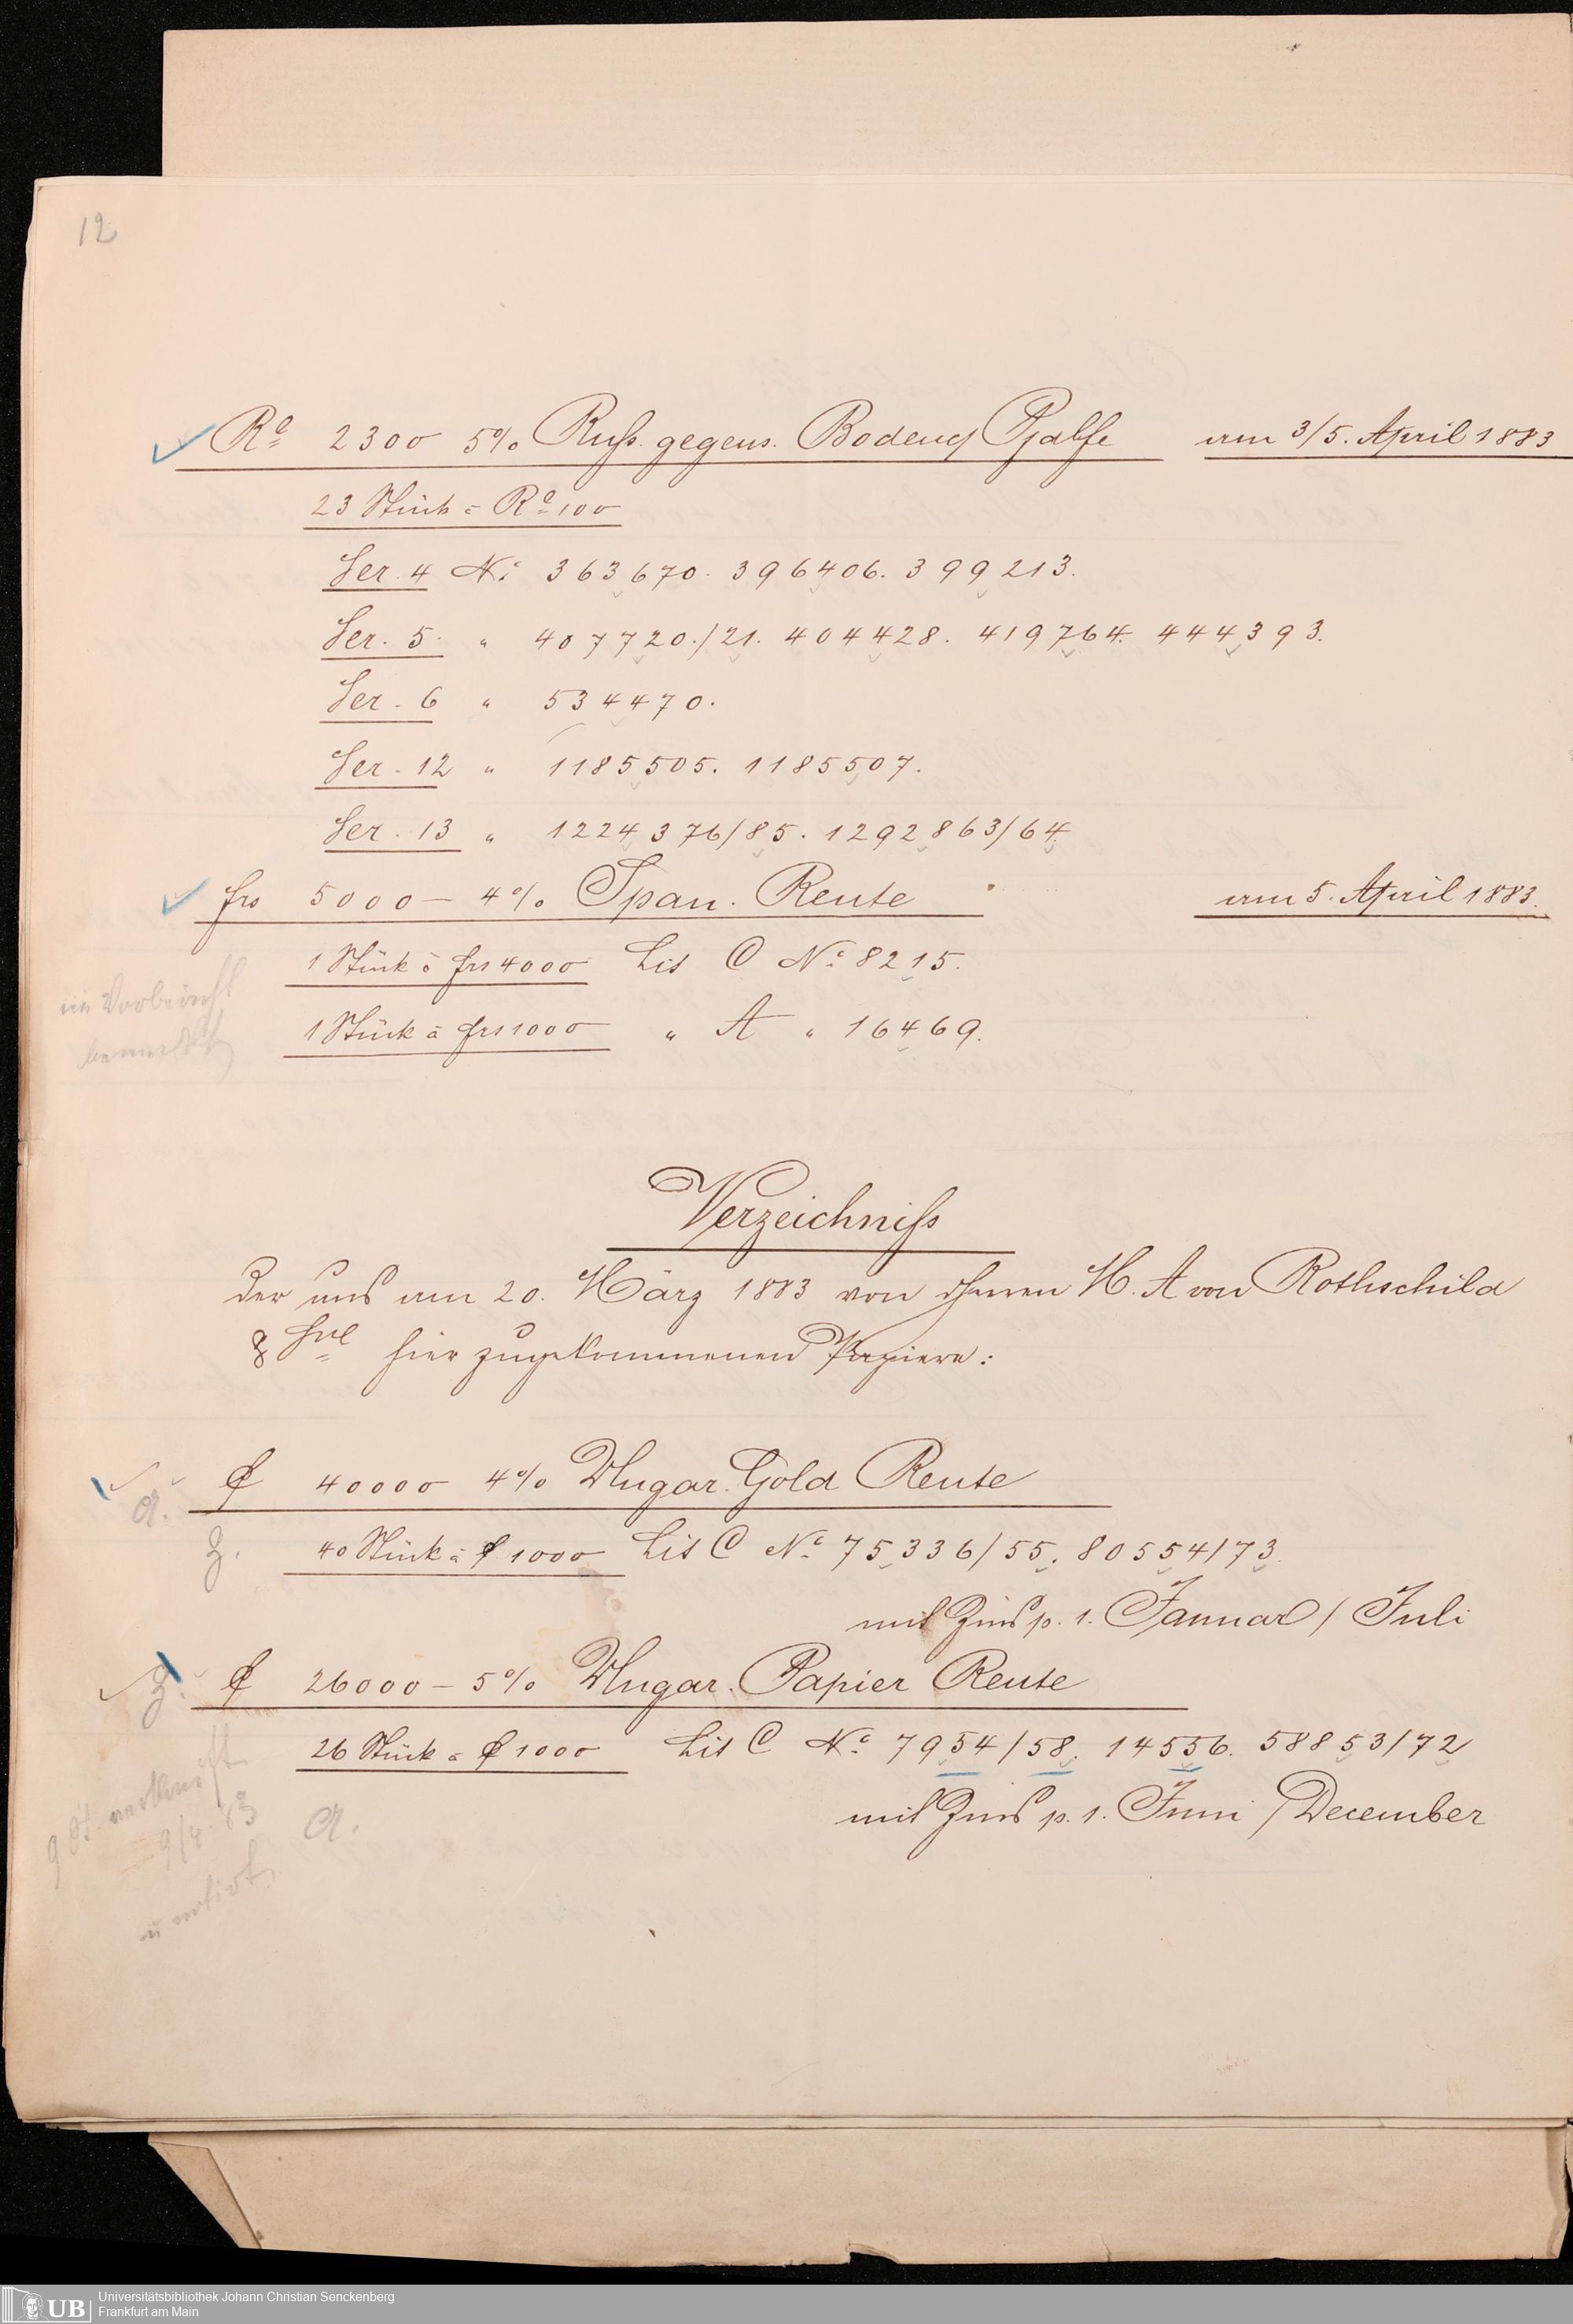 12
Ro 2300 5% Russ. gegens. Bodencr Pfdbfe am 3/5. April 1883
23 Stück à Ro 100
Ser. 4 No 363670. 396406. 399213.
Ser. 5. " 407720./21. 404428. 419764. 444393.
Ser. 6 " 534470.
Ser. 12 " 1185505. 1185507.
Ser. 13 " 1224376/85. 1292863/64.
frs 5000 – 4% Span. Rente am 5. April 1883.
1 Stück à frs 4000 Lit C No 8215.
1 Stück à frs 1000 " A " 16469.
Verzeichniss
der uns am 20. März 1883 von Herren M. A von Rothschild
& Sne hier zugekommenen Papiere:
fl 40000 4% Ungar. Gold Rente
a.
40 Stück à fl 1000 Lit C No 75336/55. 80554/73.
z.
mit Zins p. 1. Januar / Juli
fl 26000 – 5% Ungar. Papier Rente
z.
26 Stück à fl 1000 Lit C No 7954/58. 14556. 58853/72
mit Zins p. 1. Juni / December
9 St. verkauft
9/4. 83
a.
u notirt
Universitätsbibliothek Johann Christian Senckenberg
UB
Frankfurt am Main